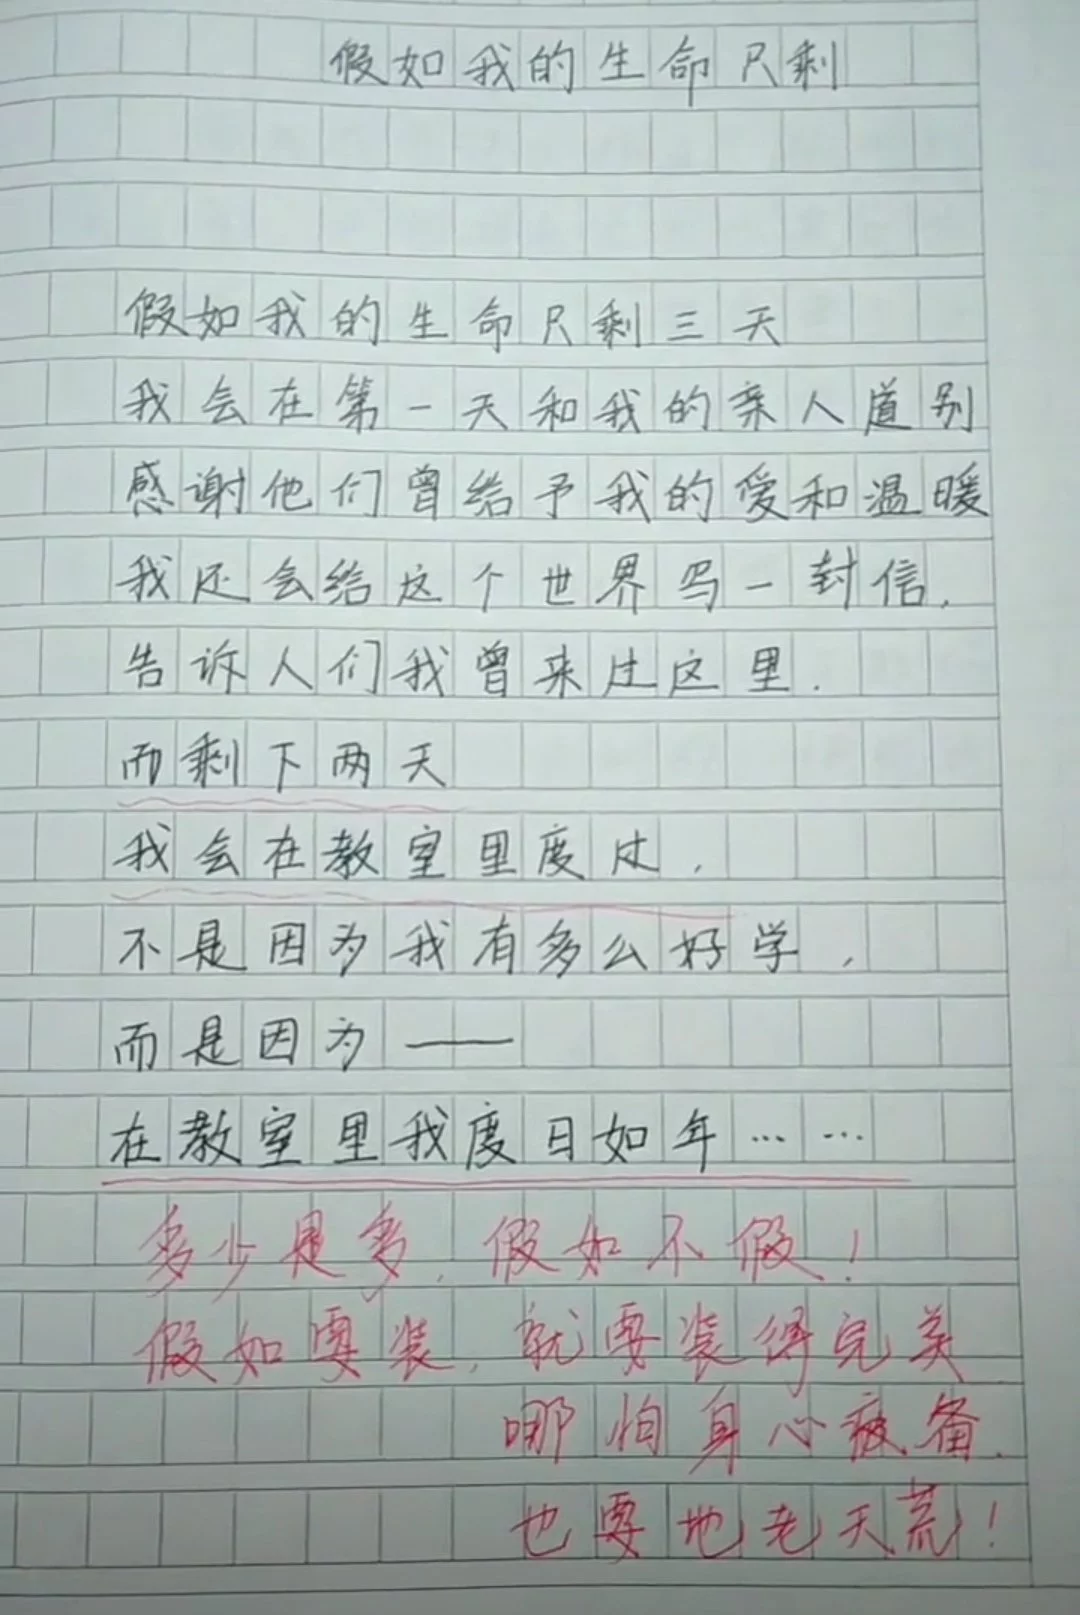 假如我的生命只剩
假如我的生命只剩三天
我会在第一天和我的亲人道别
感谢他们曾给予我的爱和温暖
我还会给这个世界写一封信，
告诉人们我曾来过这里．
而剩下两天
我会在教室里度过，
不是因为我有多么好学，
而是因为——
在教室里我度日如年……
多少是多，假如不假！
假如要装，就要装得完美
哪怕身心疲备．
也要地老天荒！